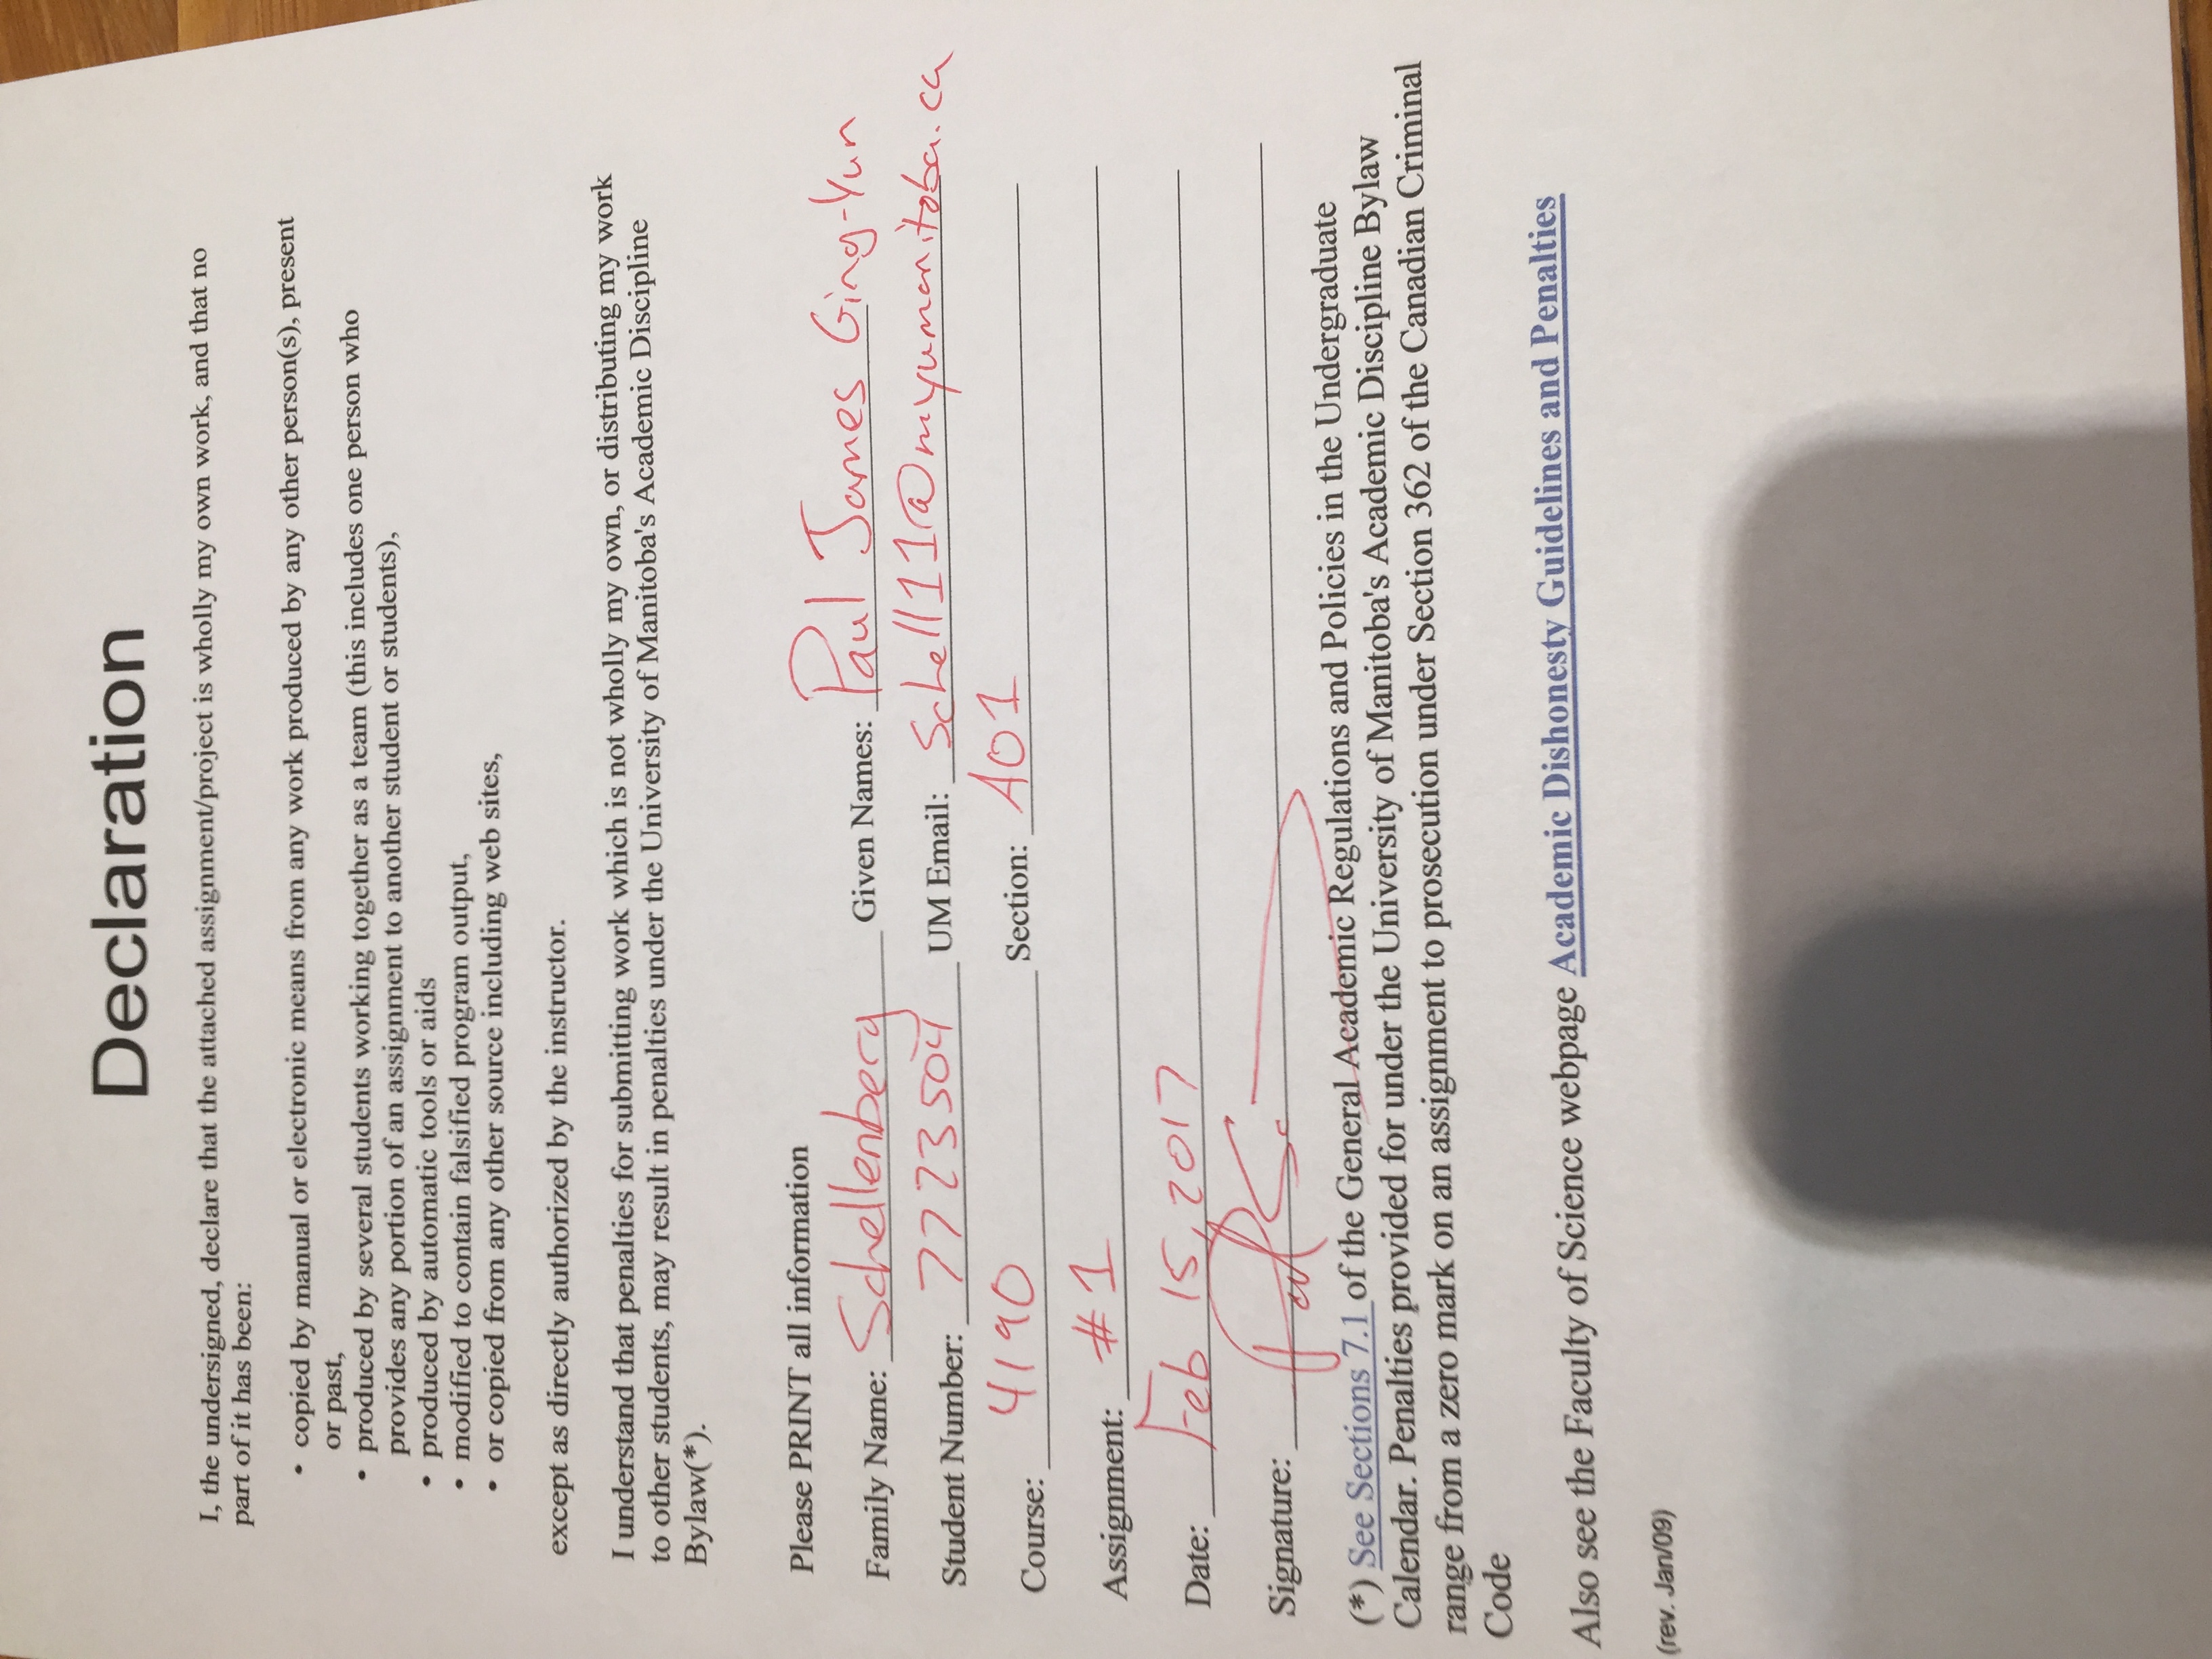 Declaration
I, the undersigned, declare that the attached assignment/project is wholly my own work, and that no
part of it has been:
• copied by manual or electronic means from any work produced by any other person(s), present
or past,
• produced by several students working together as a team (this includes one person who
provides any portion of an assignment to another student or students),
• produced by automatic tools or aids
• modified to contain falsified program output,
• or copied from any other source including web sites,
except as directly authorized by the instructor.
I understand that penalties for submitting work which is not wholly my own, or distributing my work
to other students, may result in penalties under the University of Manitoba's Academic Discipline
Bylaw(*).
Please PRINT all information
Family Name: Schellenberg Given Names: Paul James Ging-Yun
Student Number: 7723504 UM Email: Schell11@myumanitoba.ca
Course: 4190 Section: A01
Assignment: #1
Date: Feb 15, 2017
Signature:
(*) See Sections 7.1 of the General Academic Regulations and Policies in the Undergraduate
Calendar. Penalties provided for under the University of Manitoba's Academic Discipline Bylaw
range from a zero mark on an assignment to prosecution under Section 362 of the Canadian Criminal
Code
Also see the Faculty of Science webpage Academic Dishonesty Guidelines and Penalties
(rev. Jan/09)